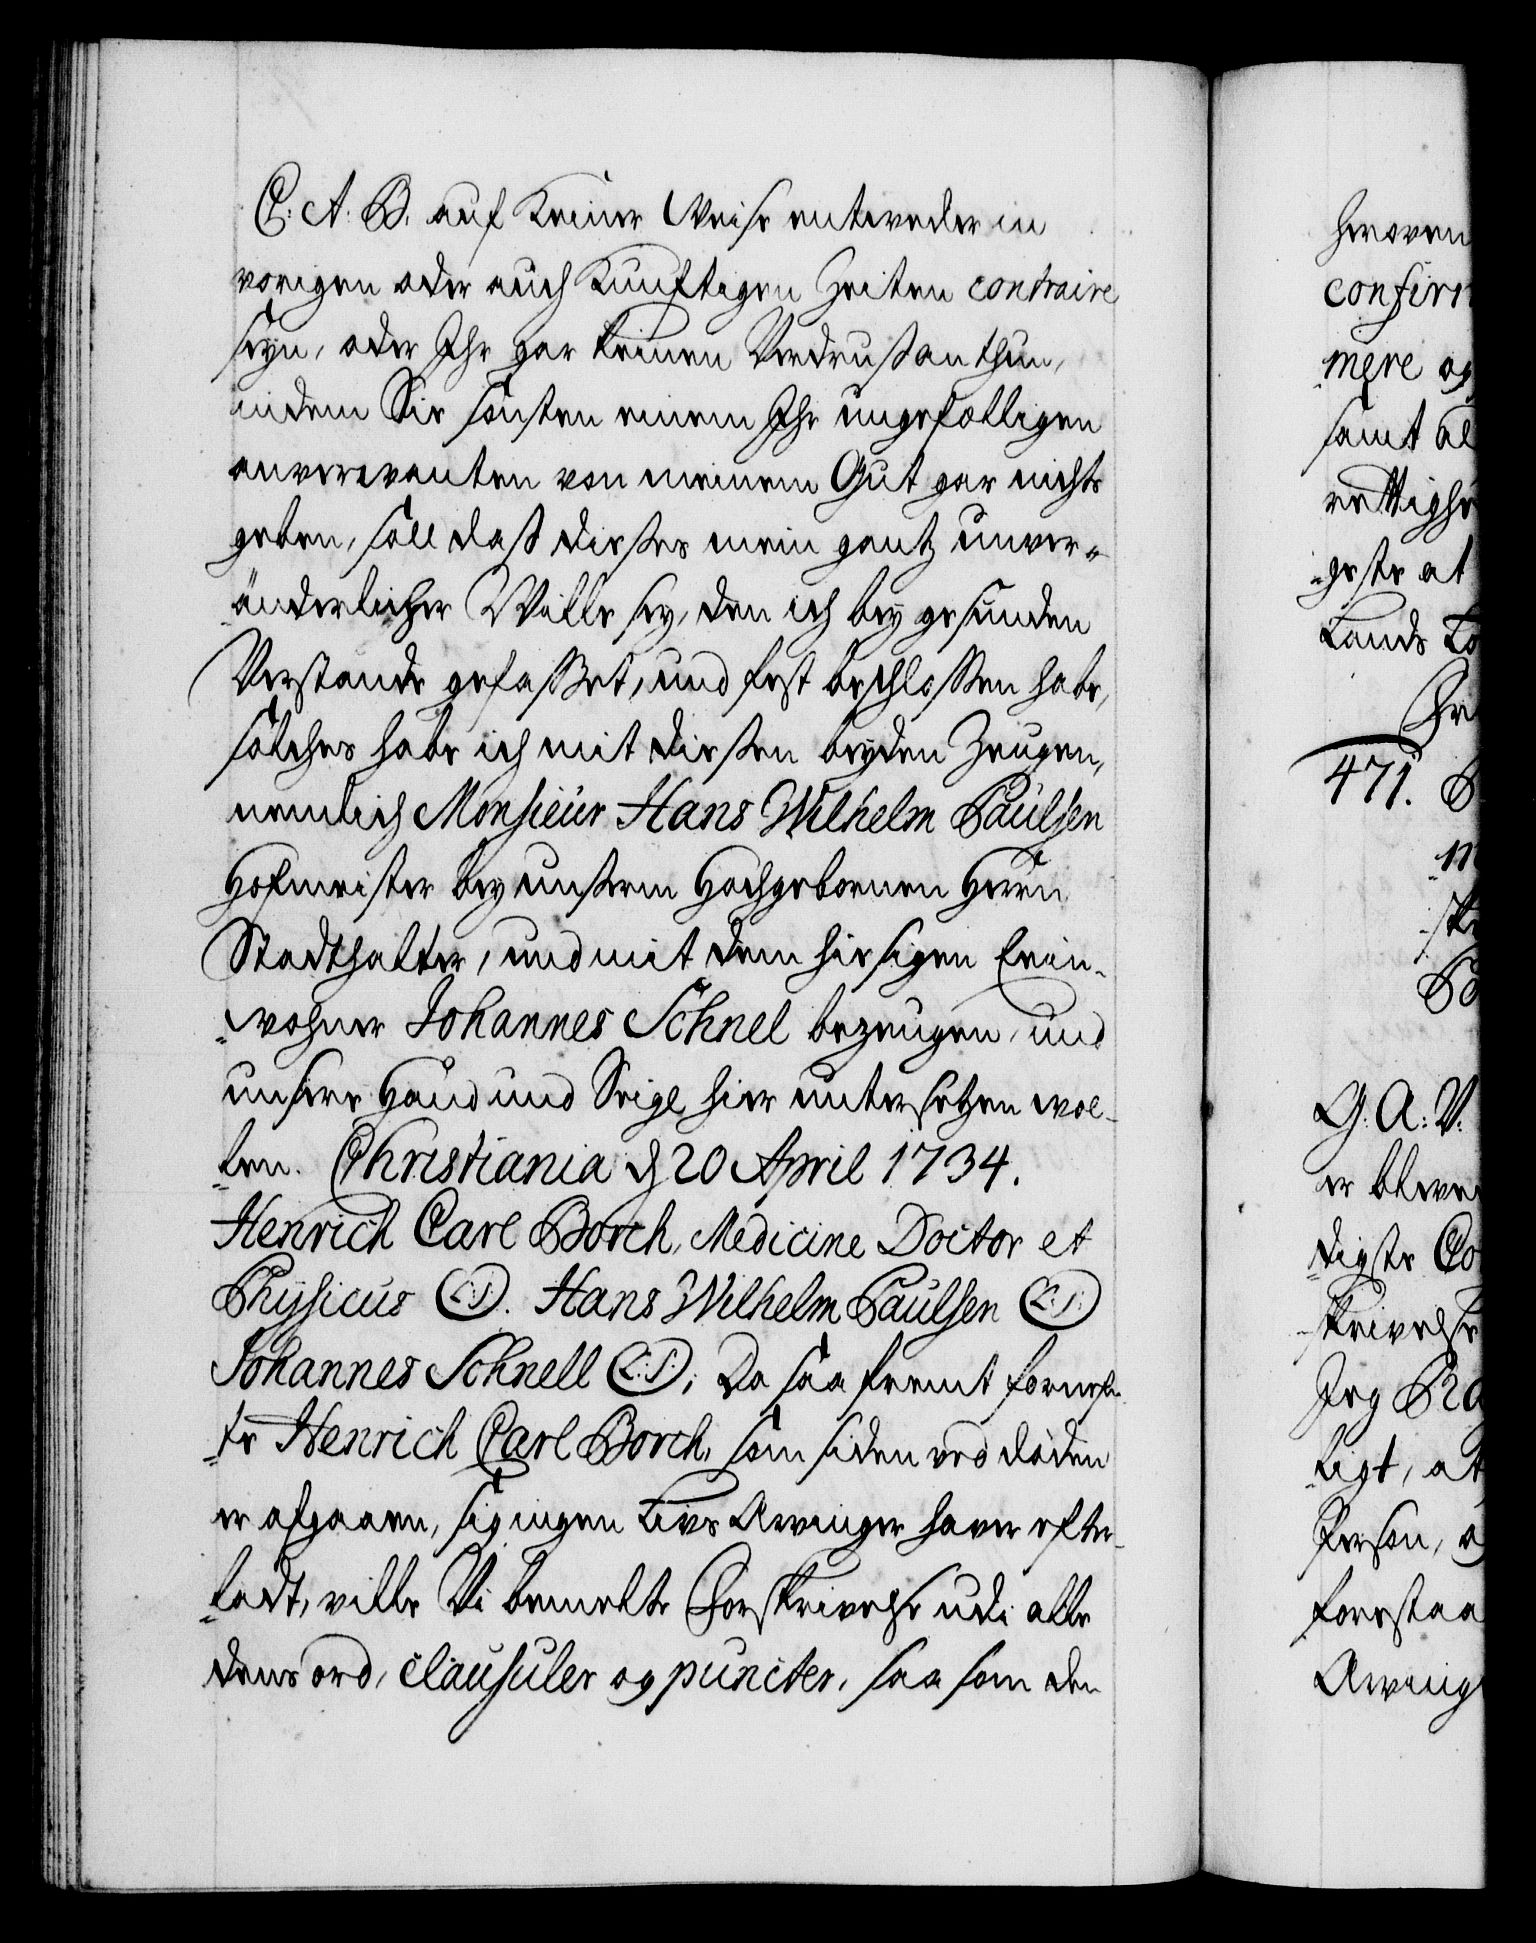 C: A: B. auf Keiner Weise entweder in
vorigen oder auch Kunftigen Zeiten contraire
seyn, oder Ihr gar keinen Verdruß anthun,
indem Sie sonsten einem Ihr ungefälligen
anverwanten von meinem Gut gar nichts
geben, soll daß dießes mein gantz unver-
änderlicher Wille sey, den ich bey gesunden
Verstande gefaßet, und fest beschloßen habe,
solches habe ich mit dießen beyden Zeugen,
nemlich Monsieur Hans Wilhelm Paulsen
Hofmeister bey unßerm Hochgebornen Herrn
Stadthalter, und mit dem hiesigen Ein-
wohner Johannes Schnel bezeugen, und
unsere Hand und Seigl hier untersetzen wol-
len. Christiania d 20 April 1734.
Henrich Carl Borch, Medicine Doctor et
Physicus L:S:. Hans Wilhelm Paulsen L:S:
Johannes Schnell L:S:; Da saafremt fornefn-
te Henrich Carl Borch, som siden ved døden
er afgaaen, sig ingen Livs Arvinger haver efter-
ladt, ville Vi bemelte Forskrivelse udi alle
dens ord, clausuler og puncter, saa som den
heroven
confirm
mere og
samt al
rettighe
geste at
Lands Lo
471.
G: A: V:
er bleve
digste Co
skrivelse
Jeg
ligt, at
Person, o
forestaa
Arving